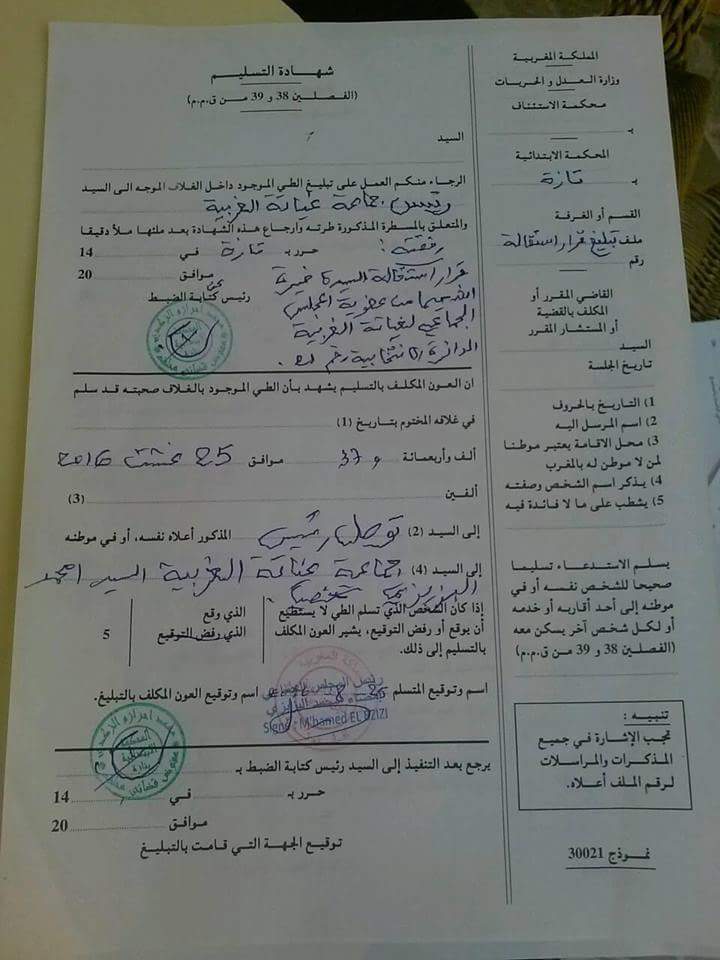 المملكة المغربية
وزارة العدل و الحريات
محكمة الاستئناف
بـ
المحكمة الابتدائية
بـ تازة
القسم أو الغرفة
ملف تبليغ قرار استقالة
رقم
القاضي المقرر أو
المكلف بالقضية
أو المستشار المقرر
السيد
تاريخ الجلسة
1) التاريخ بالحروف
2) اسم المرسل اليه
3) محل الاقامة يعتبر موطنا
لمن لا موطن له بالمغرب
4) يذكر اسم الشخص وصفته
5) يشطب على ما لا فائدة فيه
يسلم الاستدعاء تسليما
صحيحا للشخص نفسه أو في
موطنه إلى أحد أقاربه أو خدمه
أو لكل شخص آخر يسكن معه
(الفصلين 38 و 39 من ق.م.م)
تنبيه :
تجب الإشارة في جميع
المذكرات والمراسلات
لرقم الملف أعلاه.
نموذج 30021
شهادة التسليم
(الفصلين 38 و 39 من ق.م.م)
السيد
الرجاء منكم العمل على تبليغ الطي الموجود داخل الغلاف الموجه الى السيد
رئيس جماعة غياتة الغربية
والمتعلق بالمسطرة المذكورة طرته وارجاع هذه الشهادة بعد ملئها ملأ دقيقا
رفقته : حرر بـ تازة في 14
قرار استقالة السيدة موافق 20
من عضوية المجلس رئيس كتابة الضبط
الجماعي لغياتة الغربية
الدائرة الانتخابية رقم
ان العون المكلف بالتسليم يشهد بأن الطي الموجود بالغلاف صحبته قد سلم
في غلافه المختوم بتاريخ (1)
ألف وأربعمائة و 37 موافق 25 غشت 2016
ألفين (3)
إلى السيد (2) توصل رئيس المذكور أعلاه نفسه، أو في موطنه
إلى السيد (4) جماعة غياتة الغربية السيد امحمد
البزيزي شخصيا
إذا كان الشخص الذي تسلم الطي لا يستطيع
أن يوقع أو رفض التوقيع، يشير العون المكلف
بالتسليم إلى ذلك.
الذي وقع
الذي رفض التوقيع 5
اسم وتوقيع المتسلم اسم وتوقيع العون المكلف بالتبليغ.
Signé : M'hamed EL BZIZI
يرجع بعد التنفيذ إلى السيد رئيس كتابة الضبط بـ
حرر بـ في 14
موافق 20
توقيع الجهة التي قامت بالتبليغ